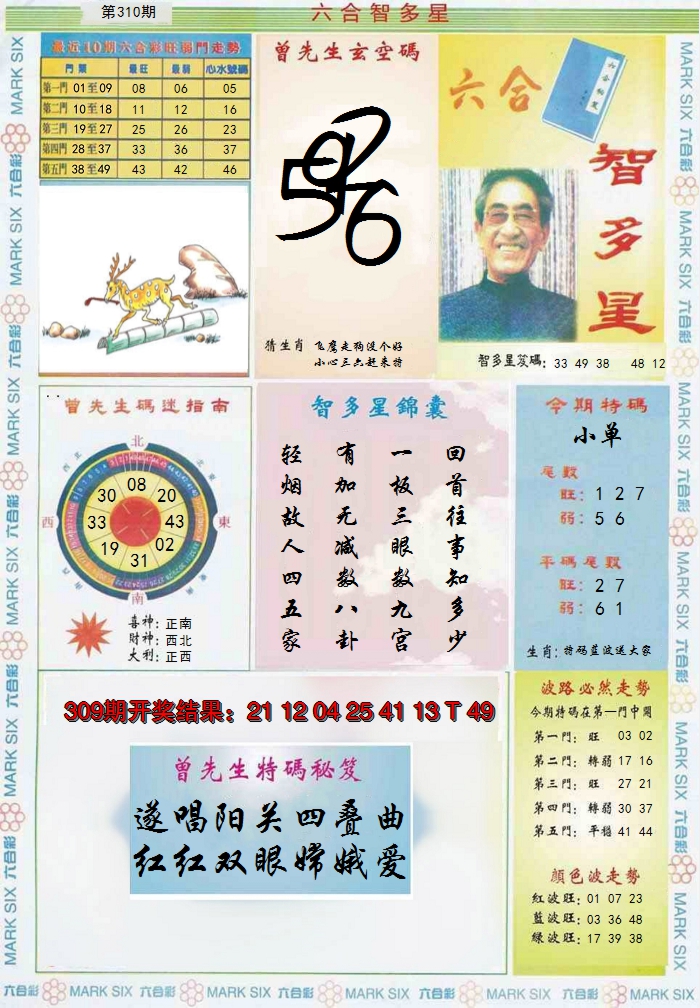 第310期
六合智多星
最近10期六合彩旺弱門走勢
門類 最旺 最弱 心水號碼
第一門 01至09 08 06 05
第二門 10至18 11 12 16
第三門 19至27 25 26 23
第四門 28至37 33 36 37
第五門 38至49 43 42 46
曾先生玄空碼
猜生肖 飞鹰走狗没个好
小心三六赶来特
六合
智多星
智多星笈碼: 33 49 38 48 12
曾先生碼迷指南
北
西
東
南
08
20
43
02
31
19
33
30
喜神: 正南
財神: 西北
大利: 正西
智多星錦囊
回首往事知多少
一板三眼数九宫
有加无减数八卦
轻烟故人四五家
今期特碼
小单
尾數
旺: 1 2 7
弱: 5 6
平碼尾數
旺: 2 7
弱: 6 1
生肖: 特码蓝波送大家
309期开奖结果: 21 12 04 25 41 13 T 49
曾先生特碼秘笈
遂唱阳关四叠曲
红红双眼嫦娥爱
波路必然走勢
今期特碼在第一門中開
第一門: 旺 03 02
第二門: 轉弱 17 16
第三門: 旺 27 21
第四門: 轉弱 30 37
第五門: 平穩 41 44
顏色波走勢
紅波旺: 01 07 23
藍波旺: 03 36 48
綠波旺: 17 39 38
六合彩 MARK SIX 六合彩 MARK SIX 六合彩 MARK SIX 六合彩 MARK SIX 六合彩 MARK SIX